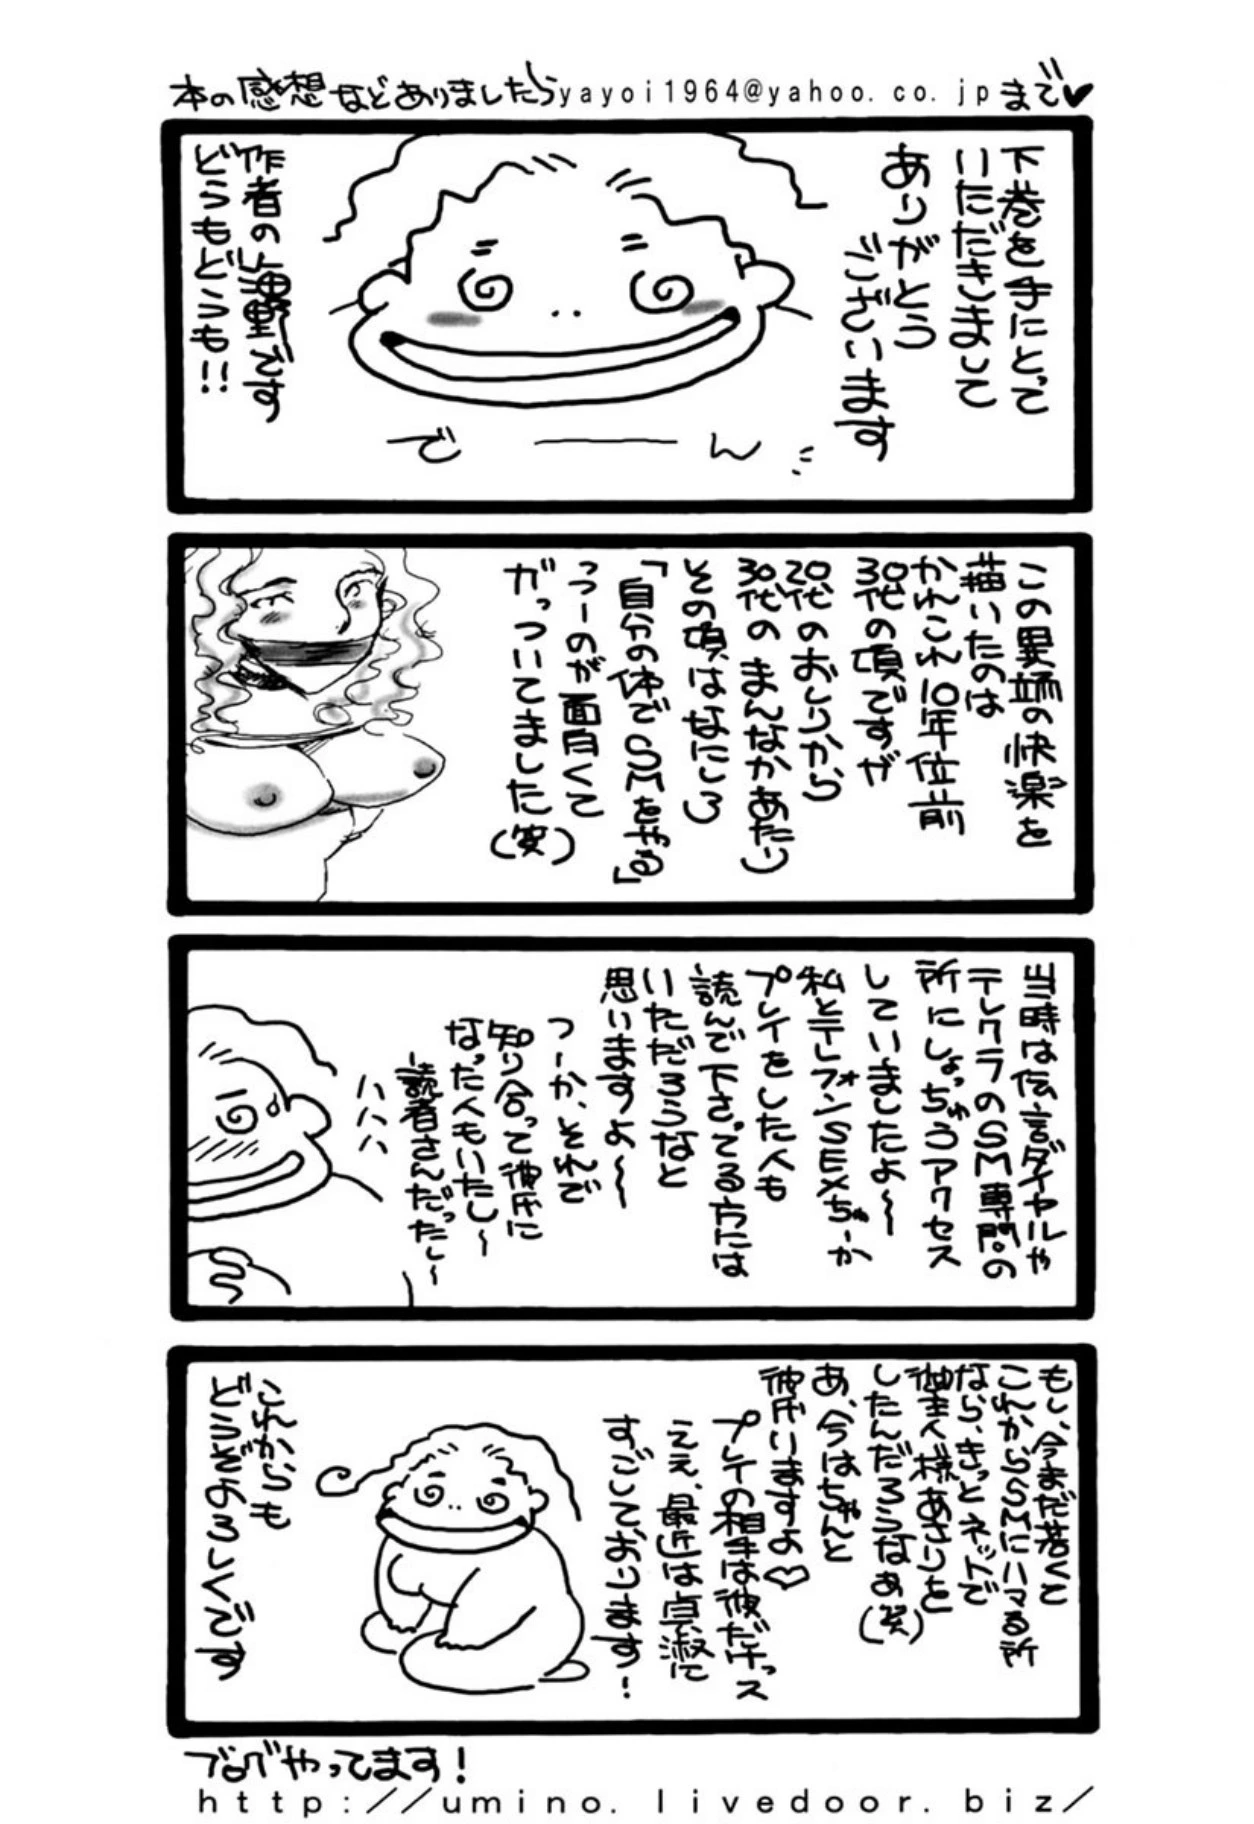 本の感想などありましたらyayoi1964@yahoo.co.jpまで♥
下巻を手にとって
いただきまして
ありがとう
ございます
で――ん
作者の海野です
どうもどうも!!
この異端の快楽を
描いたのは
かれこれ10年位前
30代の頃ですが
20代のおしりから
30代のまんなかあたり)
その頃はなにしろ
「自分の体でSMをやる」
っつーのが面白くて
がっついてました(笑)
当時は伝言ダイヤルや
テレクラのSM専門の
所にしょっちゅうアクセス
していましたよ～
私とテレフォンSEXちゅーか
プレイをした人も
読んで下さってる方には
いただろうなと
思いますよ～
つーか、それで
知り合って彼氏に
なった人もいたし～
読者さんだったし～
ハハハ
もし、今まだ若くて
これからSMにハマる所
なら、きっとネットで
御主人様あさりを
したんだろうなぁ(笑)
あ、今はちゃんと
彼氏いますよ♡
プレイの相手は彼だけっス
ええ、最近は貞淑に
すごしております!
これからも
どうぞよろしくです
ブログやってます!
http://umino.livedoor.biz/